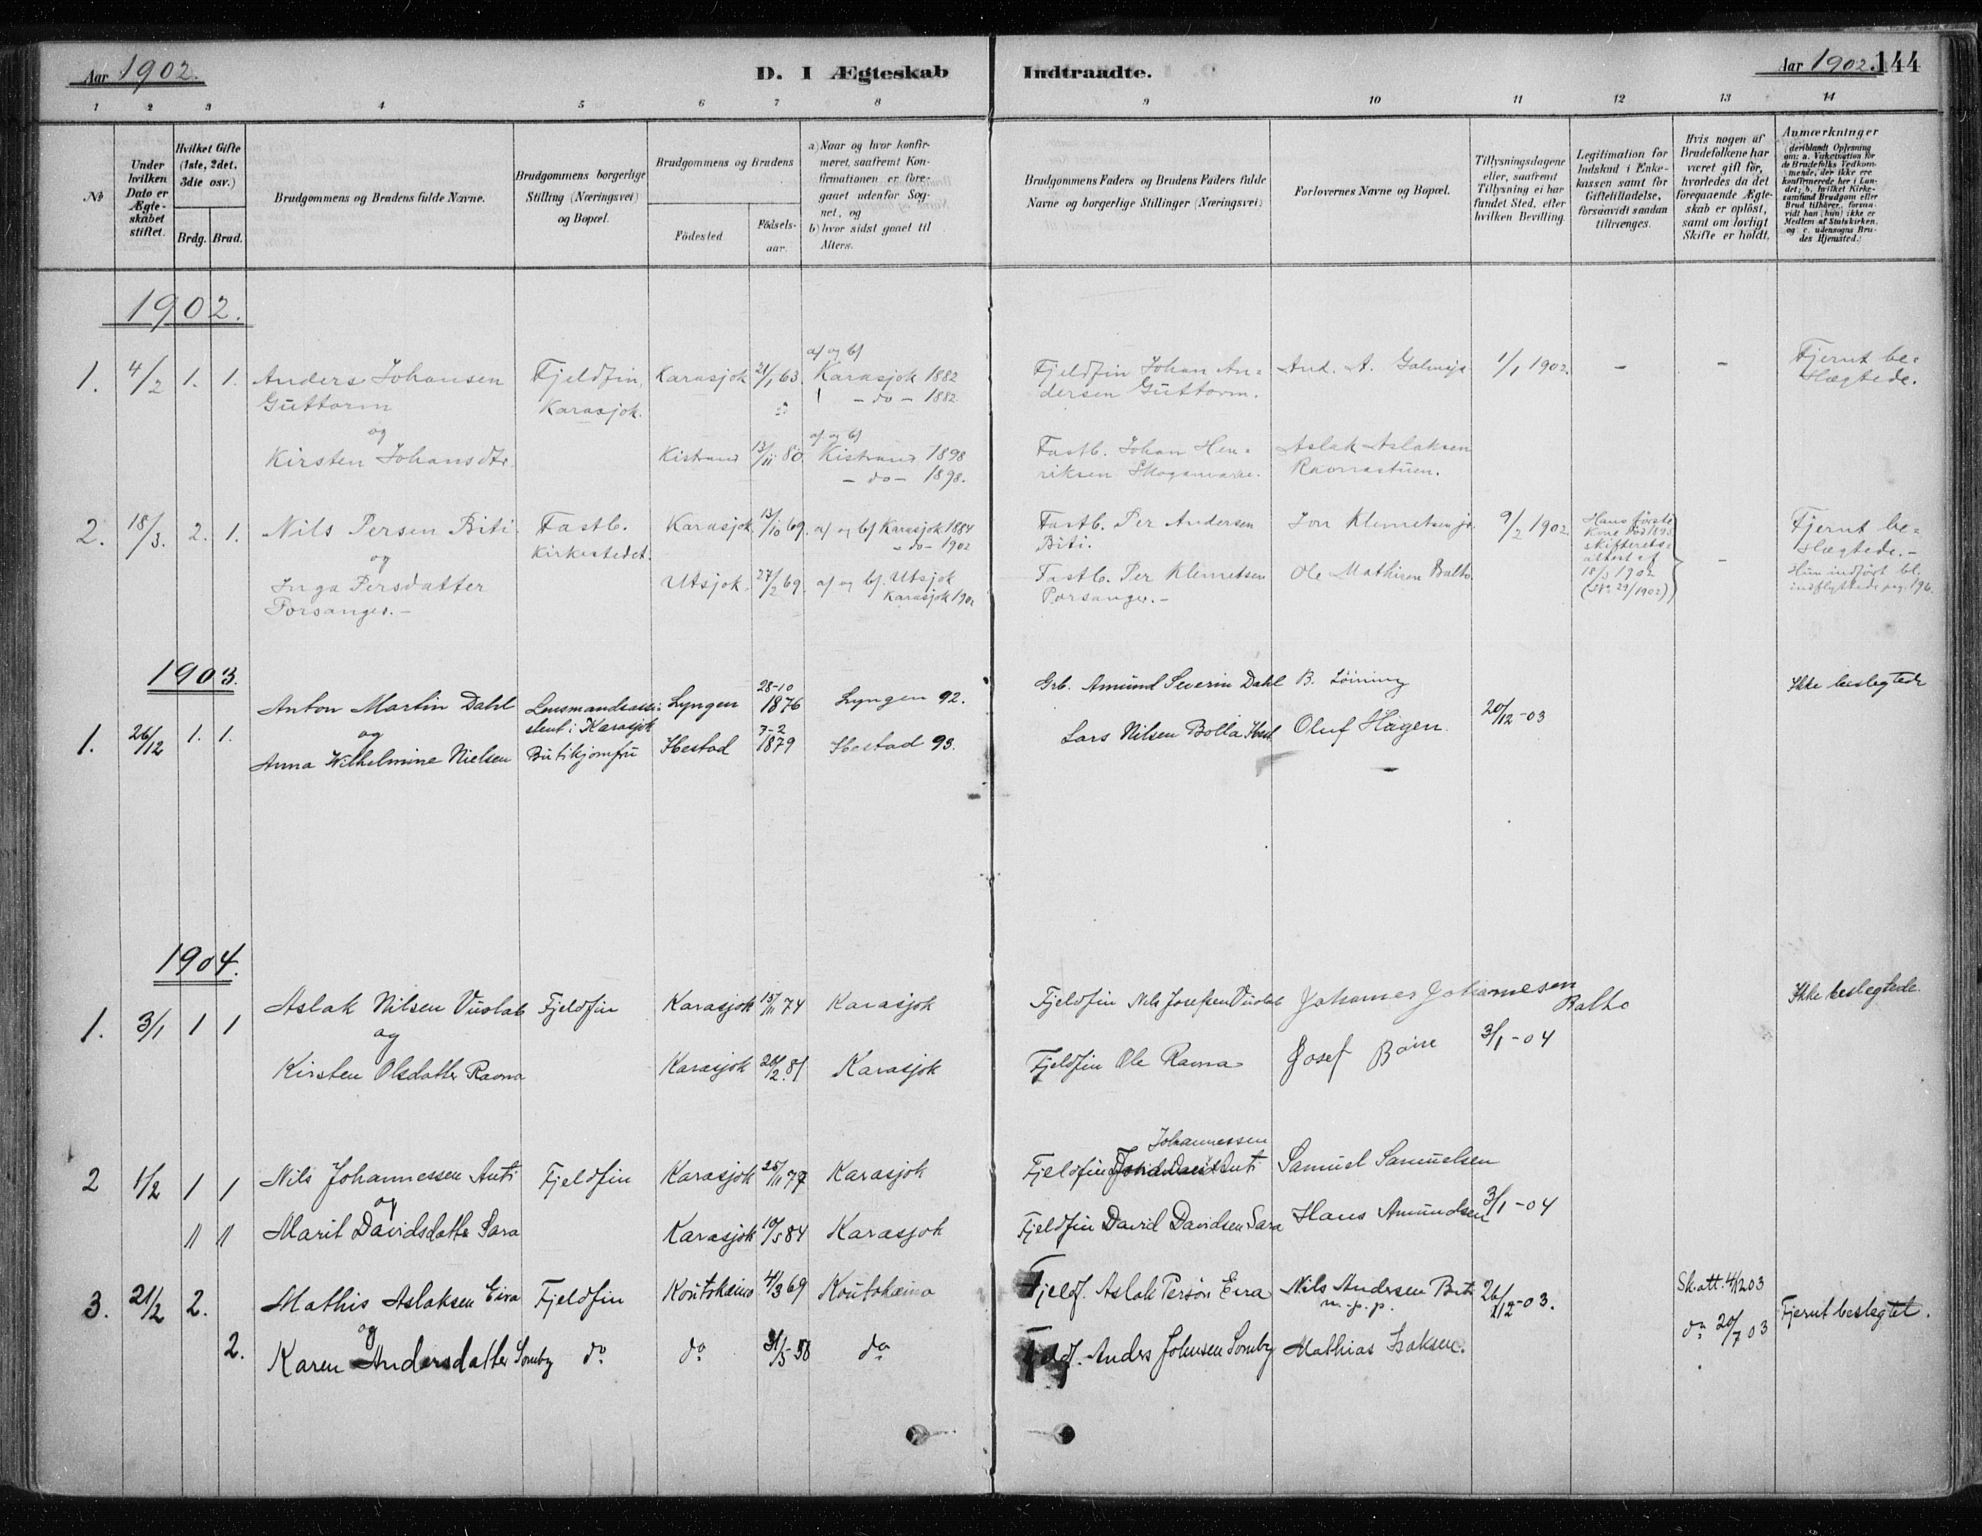 Aar 1902.
D. I Ægteskab Indtraadte.
Aar 1902. 144
1 2 3 4 5 6 7 8 9 10 11 12 13 14
No
Under hvilken Dato er Ægteskabet stiftet.
Hvilket Gifte (1ste, 2det, 3die osv.)
Brdg. Brud.
Brudgommens og Brudens fulde Navne.
Brudgommens borgerlige Stilling (Næringsvei) og Bopæl.
Brudgommens og Brudens
Fødested
Fødselsaar.
a) Naar og hvor konfirmeret, saafremt Konfirmationen er foregaaet udenfor Sognet, og
b) hvor sidst gaaet til Alters.
Brudgommens Faders og Brudens Faders fulde Navne og borgerlige Stillinger (Næringsvei)
Forlovernes Navne og Bopæl.
Tillysningsdagene eller, saafremt Tillysning ei har fundet Sted, efter hvilken Bevilling.
Legitimation for Indskud i Enkekassen samt for Giftetilladelse, forsaavidt saadan tiltrænges.
Hvis nogen af Brudefolkene har været gift før, hvorledes da det foregaaende Ægteskab er opløst, samt om lovligt Skifte er holdt.
Anmærkninger
(deriblandt Oplysning om: a. Vakcination for de Brudefolks Vedkommende, der ikke ere konfirmerede her i Landet; b. hvilket Kirkesamfund Brudgom eller Brud tilhører, forsaavidt han (hun) ikke er Medlem af Statskirken, og c. udensogns Brudes Hjemsted.)
1902.
1. 4/2 1. 1. Anders Johansen Fjeldfin, Karasjok 21/1 63. a) og b) Karasjok 1882 Fjeldfin Johan An- And. A. 1/1 1902. - - Fjernt be-
Guttorm Karasjok. - do - 1882. dersen Guttorm. slægtede.
og
Kirsten Johansdtr Kistrand 13/11 80. a) og b) Kistrand 1898 Fastb. Johan Hen- Aslak Aslaksen
- do - 1898. riksen Ravnastuen.
2. 18/3. 2. 1. Nils Persen Biti Fastb. Karasjok 13/10 69. a) og b) Karasjok 1884 Fastb. Per Andersen Jon Klemetsen 9/2 1902. Hans første Kone død 1898 Fjernt be-
og Kirkestedet. - do - 1902 Biti. skifterets- attest af - slægtede. -
Inga Persdatter Utsjok. 27/2 69. a) og b) Utsjok Fastb. Per Klemetsen Ole Mathisen Balto 18/3 1902 Hun indført bl.
Porsanger. - Karasjok 1902 Porsanger. - (No. 29/1902) indflyttede pag. 196.
1903.
1. 26/12 1. 1. Anton Martin Dahl Lensmandsassi- Lyngen 28-10 1876 Lyngen 92. Grb. Amund Severin Dahl B. Løining 20/12-03 Ikke beslegtede
og stent i Karasjok
Anna Wilhelmine Nielsen Butikjomfru Ibestad 7-2 1879 Ibestad 93. Lars Nilsen Bolla Ibest Oluf Hagen.
1904.
1. 3/1 1 1 Aslak Nilsen Vuolab Fjeldfin Karasjok 15/11 74 Karasjok Fjeldfin Nils Josefsen Vuolab Johannes Johannesen Balto Ikke beslegtede.
og
Kirsten Olsdatter Ravna Karasjok 20/2. 81 Karasjok Fjeldfin Ole Ravna Josef Boine 3/1-04
2 1/2 1 1 Nils Johannessen Anti Fjeldfin Karasjok 25/1 77 Karasjok Fjeldfin Johannessen Anti Samuel Samuelsen
og
11 11 Marit Davidsdatter Sara Karasjok 10/5 84 Karasjok Fjeldfin David Davidsen Sara Hans Amundsen 3/1-04
3. 21/2 2. Mathis Aslaksen Eira Fjeldfin Koutokæino 4/3 69 Koutokæino Fjeldf. Aslak Persøn Eira Nils Andersen Biti 26/12-03. Sk.att. 4/12 03
og m.p.p. Fjernt beslegtet.
2. Karen Andersdatter Somby do do 31/5 58 do Fjeldf. Anders Johnsen Somby Mathias Isaksen. do 20/7 03